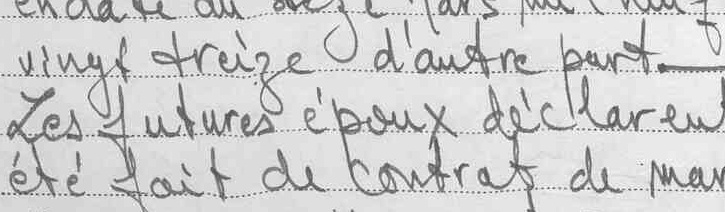 en date du seize Mars mil neuf
vingt treize d'autre part.
Les futures époux déclarent
été fait de contrat de mar